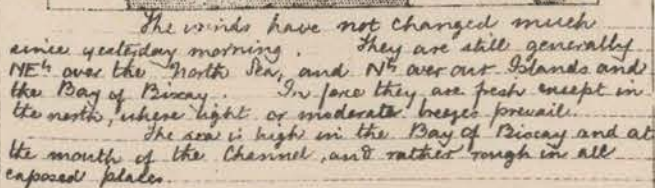 The winds have not changed much
since yesterday morning. They are still generally
NEly over the North Sea, and Nly over our Islands and
the Bay of Biscay. In force they are fresh except in
the north, where light or moderate breezes prevail.
The sea is high in the Bay of Biscay and at
the mouth of the Channel, and rather rough in all
exposed places.